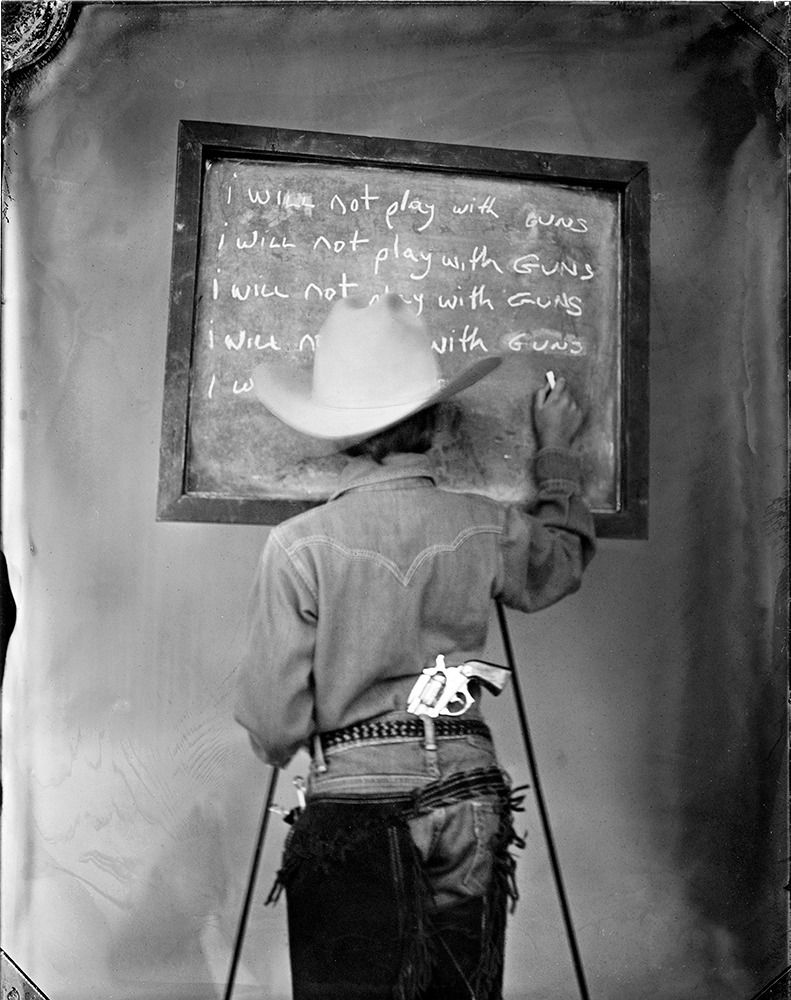 i WILL not play with GUNS
i WILL not play with GUNS
i WILL not play with GUNS
i WILL with GUNS
i W